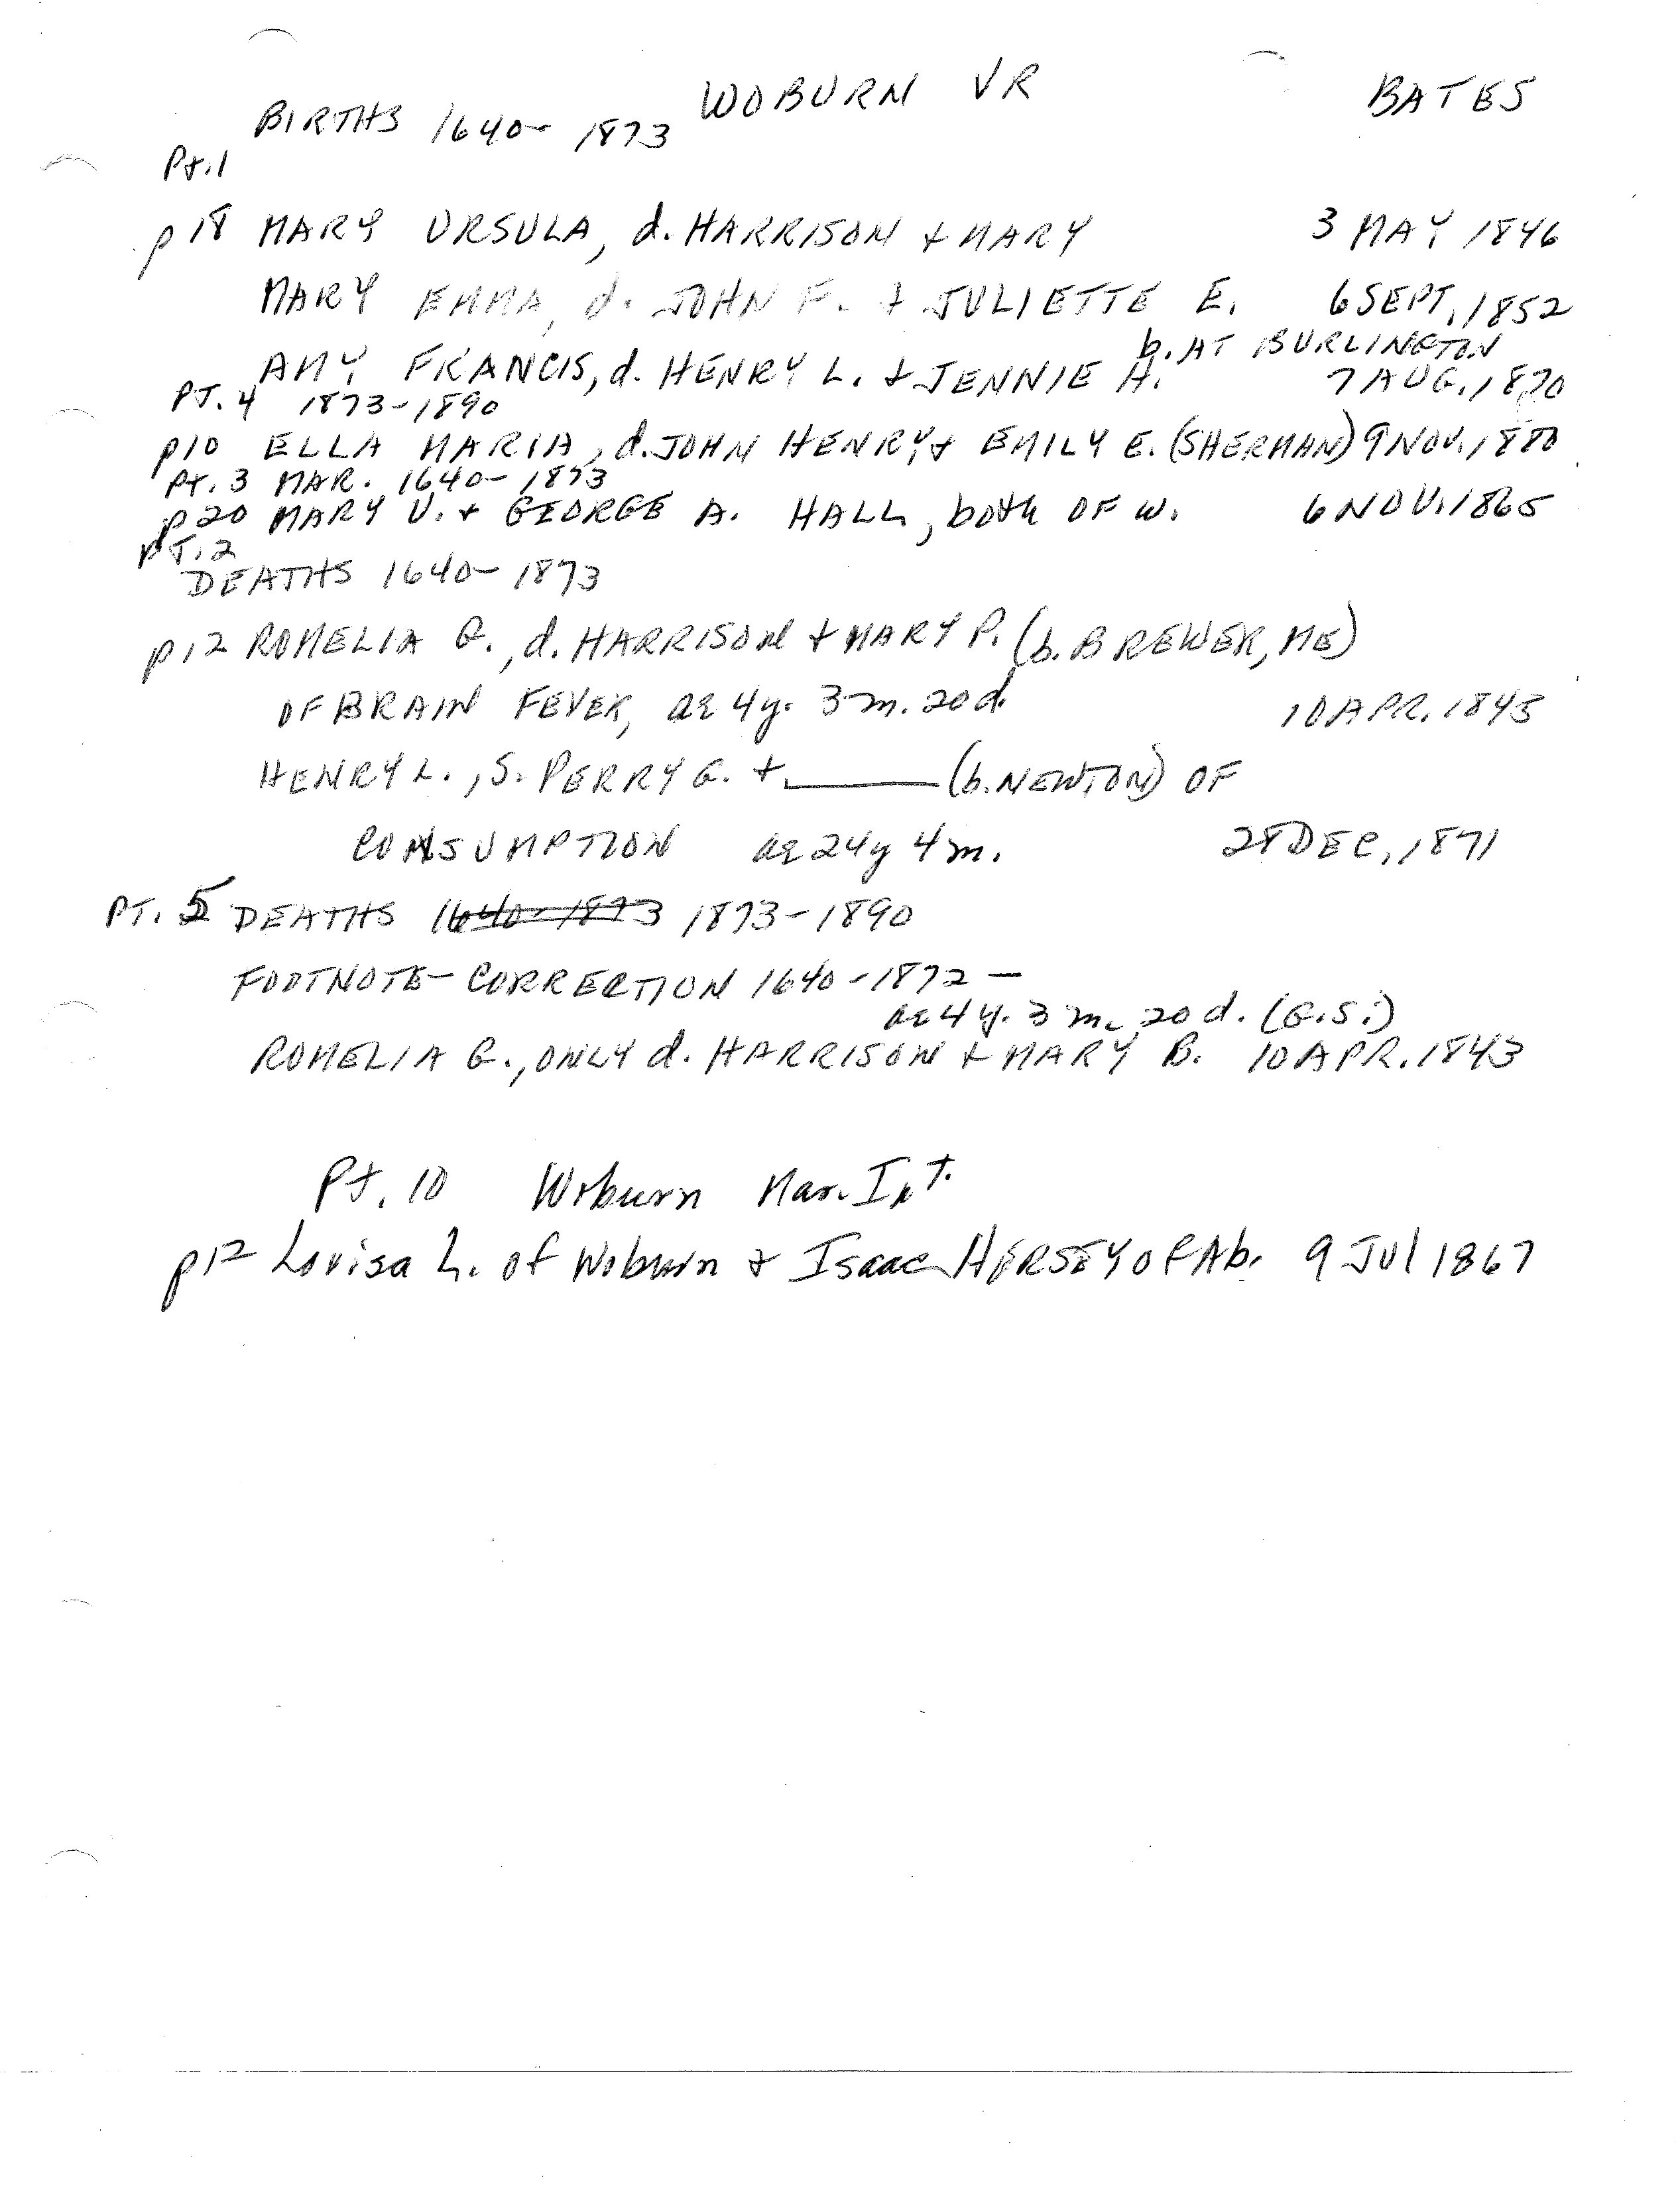 WOBURN VR BATES
BIRTHS 1640- 1873
Pt.1
p18 MARY URSULA, d. HARRISON + MARY 3 MAY 1846
MARY EMMA, d. JOHN F. + JULIETTE E. 6 SEPT, 1852
b. AT BURLINGTON
AMY FRANCIS, d. HENRY L. + JENNIE H. 7 AUG, 1870
PT. 4 1873-1890
p10 ELLA MARIA, d. JOHN HENRY + EMILY E. (SHERMAN) 9 NOV. 1880
PT. 3 MAR. 1640-1873
p20 MARY U. + GEORGE A. HALL, both OF W. 6 NOV. 1865
PT. 2
DEATHS 1640-1873
p12 ROMELIA G., d. HARRISON + MARY P. (b. BREWER, ME)
OF BRAIN FEVER, ae 4y. 3m. 20d. 10 APR. 1843
HENRY L., S. PERRY G. + ______ (b. NEWTON) OF
CONSUMPTION ae 24y 4m. 28 DEC, 1871
PT. 5 DEATHS 1640-1873 1873-1890
FOOTNOTE- CORRECTION 1640-1872 -
ae 4 y. 3 m. 20 d. (G.S.)
ROMELIA G., ONLY d. HARRISON + MARY B. 10 APR. 1843
Pt. 10 Woburn Mar. Int.
p12 Lovisa L. of Woburn + Isaac HERSEY of Ab. 9 Jul 1867